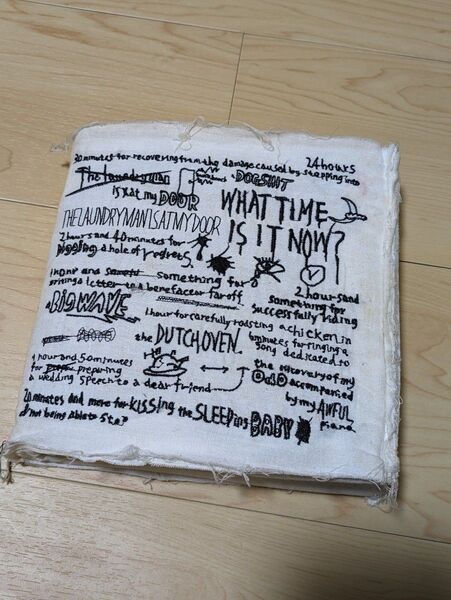 30 minutes for recovering from the damage caused by stepping into
a DOGSHIT
24 hours
The laundryman
is at my DOOR
THE LAUNDRYMAN IS AT MY DOOR
WHAT TIME
IS IT NOW?
2 hours and 40 minutes for
digging a hole of regrets.
1 hour and something for
a letter to a benefactor far off
2 hours and
something for
successfully riding
a BIG WAVE
1 hour for carefully roasting a chicken in
the DUTCH OVEN.
6 minutes for singing a
song dedicated to
the recovery of my
accompanied
by my AWFUL
piano
1 hour and 50 minutes
for preparing
a wedding speech to a dear friend
20 minutes and more for kissing the SLEEPING BABY
not being able to